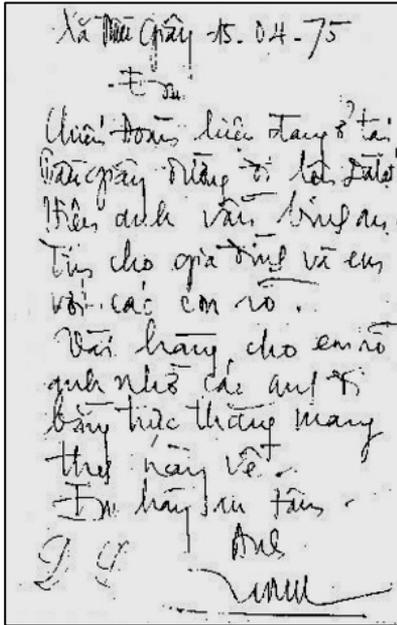 Xã Dầu Giây 15-04-75
Em
Chiến Đoàn hiện đang ở tại
Dầu Giây đường đi lên Dalat
Hiện anh vẫn bình an
Tin cho gia đình và em
với các con rõ.
Vài hàng cho em rõ
anh nhờ các anh đi
bằng trực thăng mang
thư này về.
Em hãy an tâm.
Anh